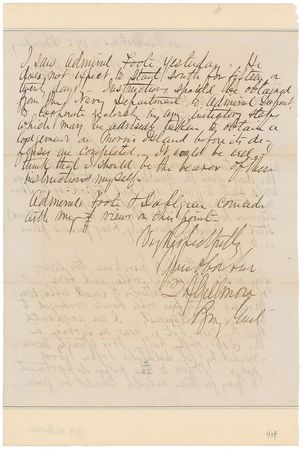 I saw Admiral Foote yesterday. He
does not expect to start South for fifteen or
twenty days. Instructions should be obtained
from the Navy Department to Admiral Dupont,
to cooperate cordially in any initiatory steps
which may be advisable to obtain a
lodgement on Morris Island before its de-
fenses are completed. It would be well I
think that I should be the bearer of these
instructions myself.
Admirals Foote & Dahlgren coincide
with my views on this point.
Very Respectfully
Your Obt Svt
Q A Gillmore
Brig Genl
404